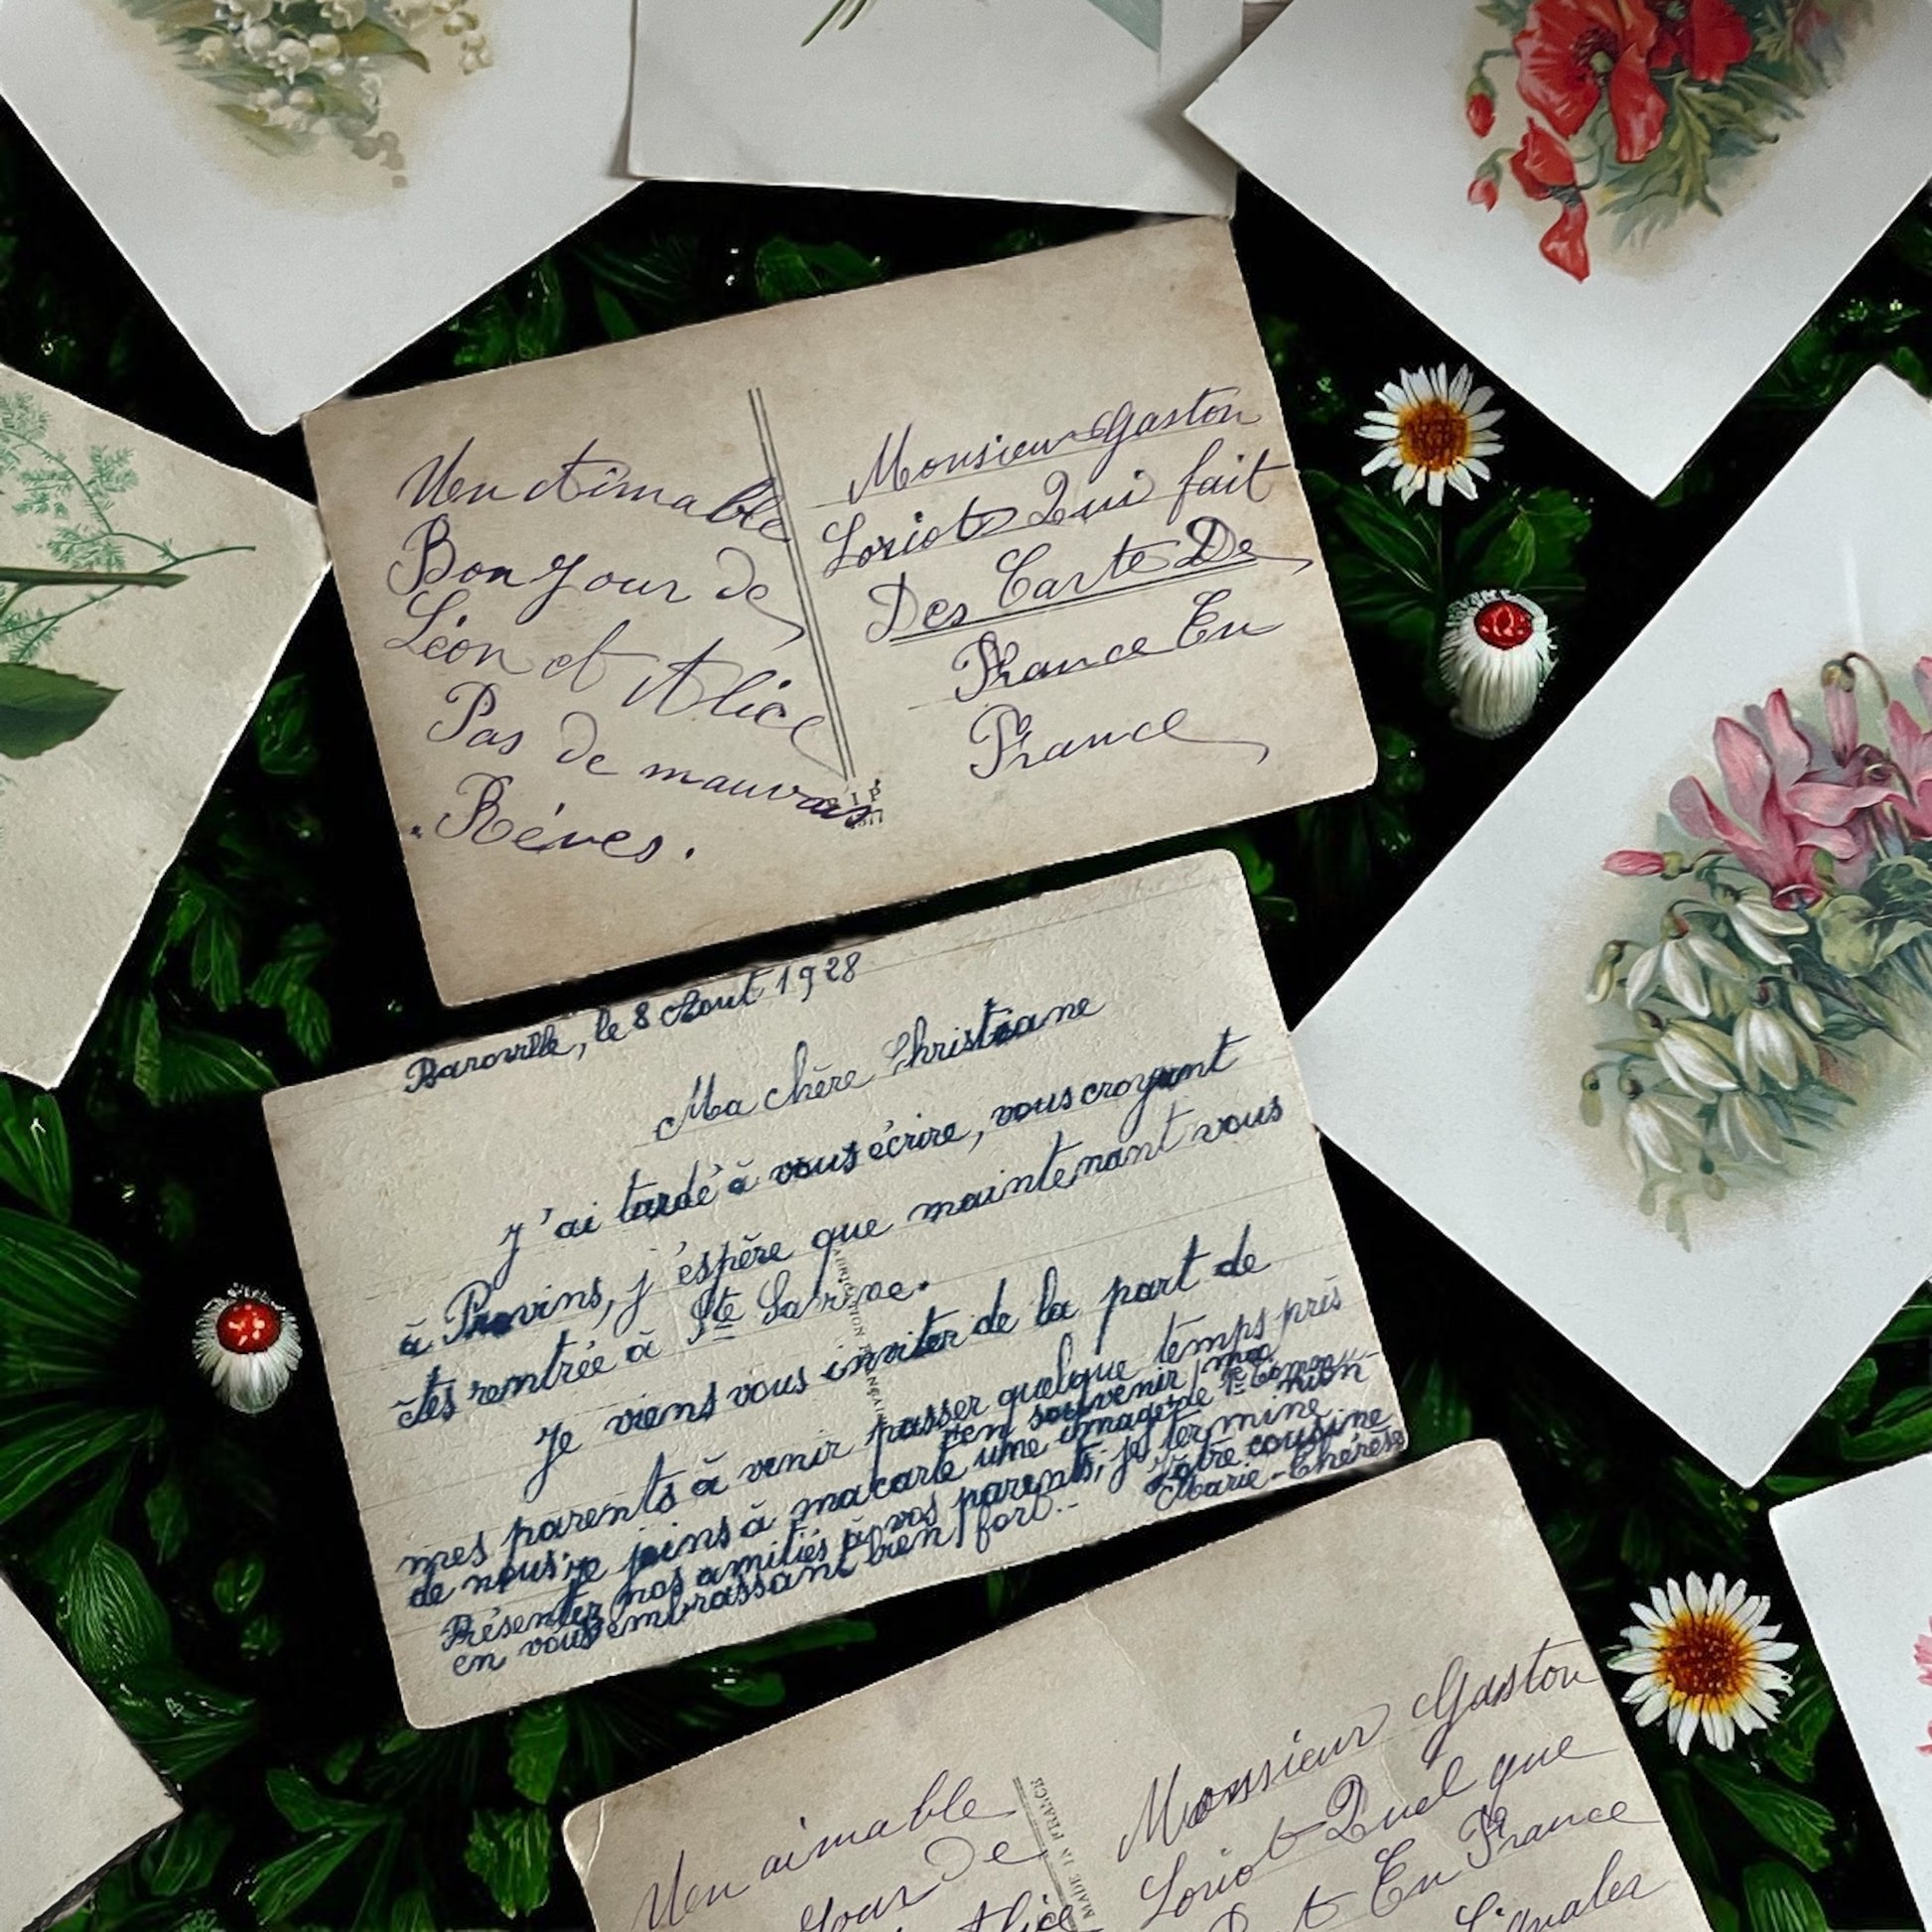 Uen Aimable
Bon Jour de
Léon et Alice
Pas de mauvais
Rêves.
Monsieur Gaston
Loriot Qui fait
Des Carte De
France En
France
Baroville, le 8 Aout 1928
Ma chère Christiane
J'ai tardé à vous écrire, vous croyant
à Provins, j'espère que maintenant vous
êtes rentrée à Ste Savine.
Je viens vous inviter de la part de
mes parents à venir passer quelque temps près
de nous je joins à ma carte une image de
en souvenir ma
1re
Présentez nos amitiés à vos parents, je termine
en vous embrassant bien fort..
Votre cousine
Marie-Thérèse
Uen aimable
Jour De
Alice
MADE IN FRANCE
Monssieur Gaston
Loriot Quel que
En France